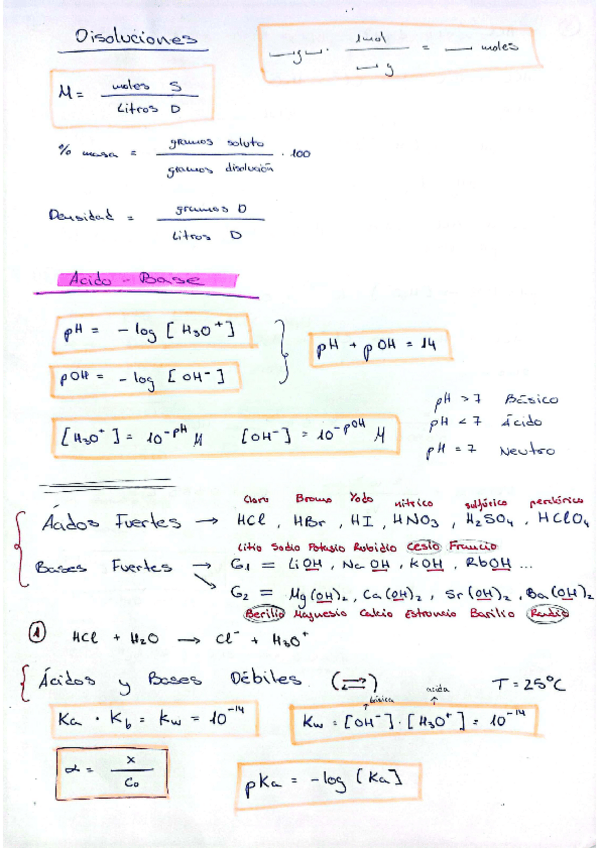 Disoluciones
g · 1mol / g = moles
M = moles S / Litros D
% masa = gramos soluto / gramos disolución · 100
Densidad = gramos D / Litros D
Ácido - Base
pH = - log [H₃O⁺]
pOH = - log [OH⁻]
pH + pOH = 14
[H₃O⁺] = 10^-pH M [OH⁻] = 10^-pOH M
pH > 7 Básico
pH < 7 Ácido
pH = 7 Neutro
Cloro Bromo Yodo nítrico sulfúrico perclórico
Ácidos Fuertes → HCl, HBr, HI, HNO₃, H₂SO₄, HClO₄
Litio Sodio Potasio Rubidio Cesio Francio
Bases Fuertes → G₁ = LiOH, NaOH, KOH, RbOH ...
G₂ = Mg(OH)₂, Ca(OH)₂, Sr(OH)₂, Ba(OH)₂
Berilio Magnesio Calcio Estroncio Barilio Radio
1 HCl + H₂O → Cl⁻ + H₃O⁺
Ácidos y Bases Débiles (⇄) T = 25°C
Ka · Kb = Kw = 10⁻¹⁴
básica acida
Kw = [OH⁻] · [H₃O⁺] = 10⁻¹⁴
α = x / C₀
pKa = - log [Ka]